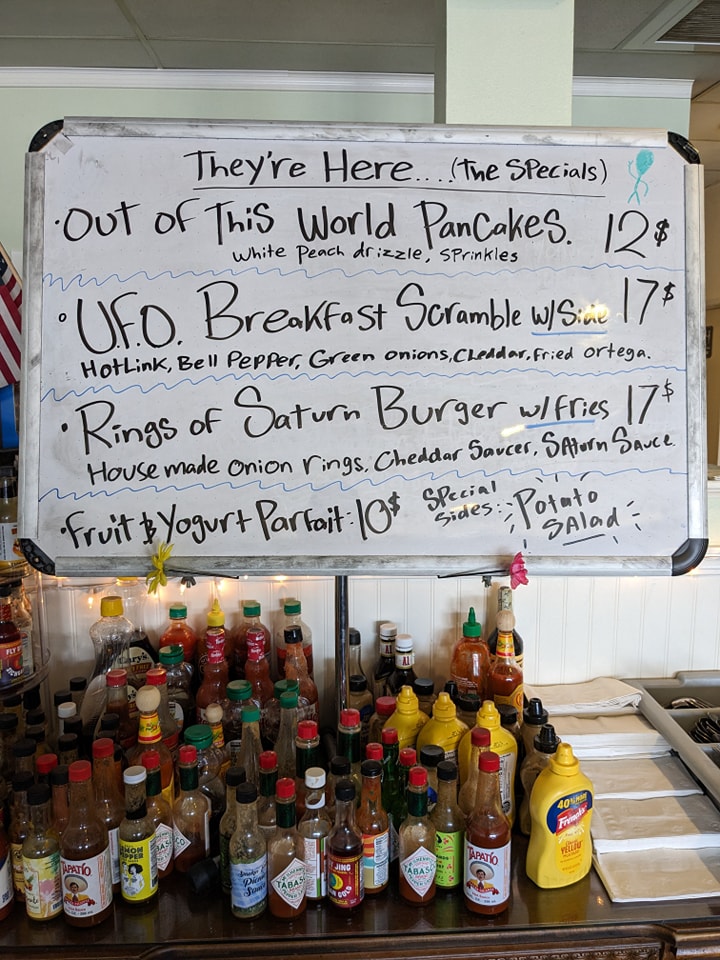 They're Here....(The Specials)
• Out of This World Pancakes. 12$
White Peach drizzle, Sprinkles
• U.F.O. Breakfast Scramble w/Side 17$
HotLink, Bell Pepper, Green onions, Cheddar, Fried Ortega.
• Rings of Saturn Burger w/fries 17$
House made onion rings, Cheddar Saucer, Saturn Sauce.
• Fruit & Yogurt Parfait: 10$ Special Sides: Potato Salad
TAPATÍO
LEMON PEPPER
TABASCO
TABASCO
TAPATÍO
40% MORE
French's
YELLOW